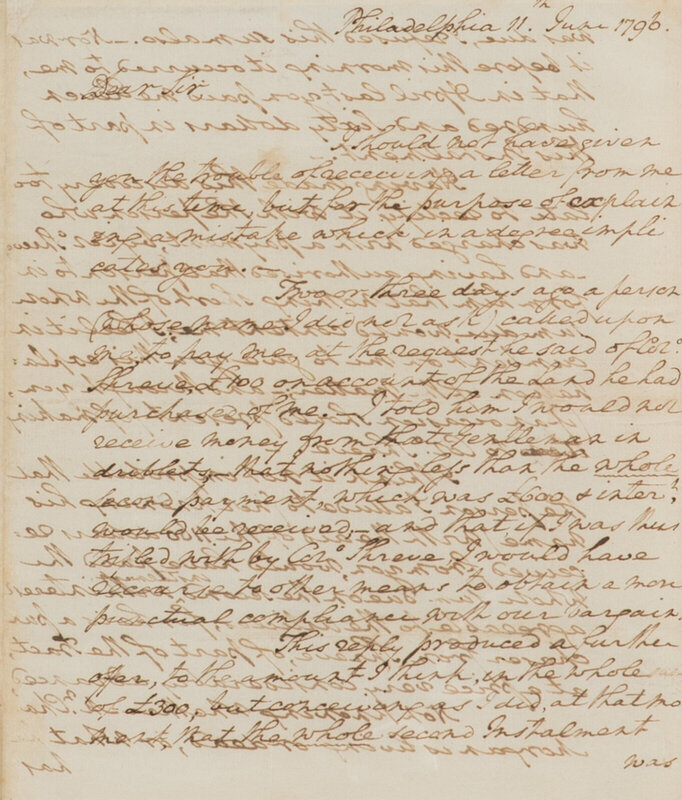 Philadelphia 11th June 1796.
Dear Sir,
I should not have given
you the trouble of receiving a letter from me
at this time, but for the purpose of explain
ing a mistake which in a degree impli
cates you. —
Two or three days ago a person
(whose name I did not ask) called upon
me, to pay me, at the request he said of Colo.
Shreve, £100 on account of the Land he had
purchased of me. — I told him I would not
receive money from that Gentleman in
driblets, — that nothing less than the whole
second payment, which was £600 & intert.
would be received, — and that if I was thus
trifled with by Colo. Shreve I would have
recourse to other means to obtain a more
punctual compliance with our bargain.
This reply produced a further
offer, to the amount I think, in the whole
of £300, but conceiving as I did, at that mo
ment, that the whole second Instalment
was